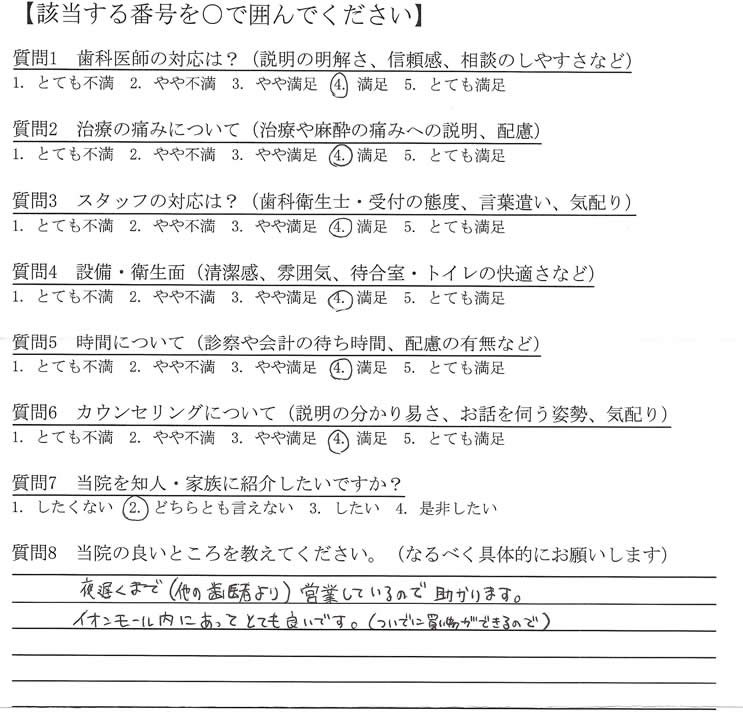 【該当する番号を○で囲んでください】
質問1 歯科医師の対応は？（説明の明解さ、信頼感、相談のしやすさなど）
1. とても不満 2. やや不満 3. やや満足 4. 満足 5. とても満足
質問2 治療の痛みについて（治療や麻酔の痛みへの説明、配慮）
1. とても不満 2. やや不満 3. やや満足 4. 満足 5. とても満足
質問3 スタッフの対応は？（歯科衛生士・受付の態度、言葉遣い、気配り）
1. とても不満 2. やや不満 3. やや満足 4. 満足 5. とても満足
質問4 設備・衛生面（清潔感、雰囲気、待合室・トイレの快適さなど）
1. とても不満 2. やや不満 3. やや満足 4. 満足 5. とても満足
質問5 時間について（診察や会計の待ち時間、配慮の有無など）
1. とても不満 2. やや不満 3. やや満足 4. 満足 5. とても満足
質問6 カウンセリングについて（説明の分かり易さ、お話を伺う姿勢、気配り）
1. とても不満 2. やや不満 3. やや満足 4. 満足 5. とても満足
質問7 当院を知人・家族に紹介したいですか？
1. したくない 2. どちらとも言えない 3. したい 4. 是非したい
質問8 当院の良いところを教えてください。（なるべく具体的にお願いします）
夜遅くまで（他の歯医者より）営業しているので助かります。
イオンモール内にあってとても良いです。（ついでに買い物ができるので）